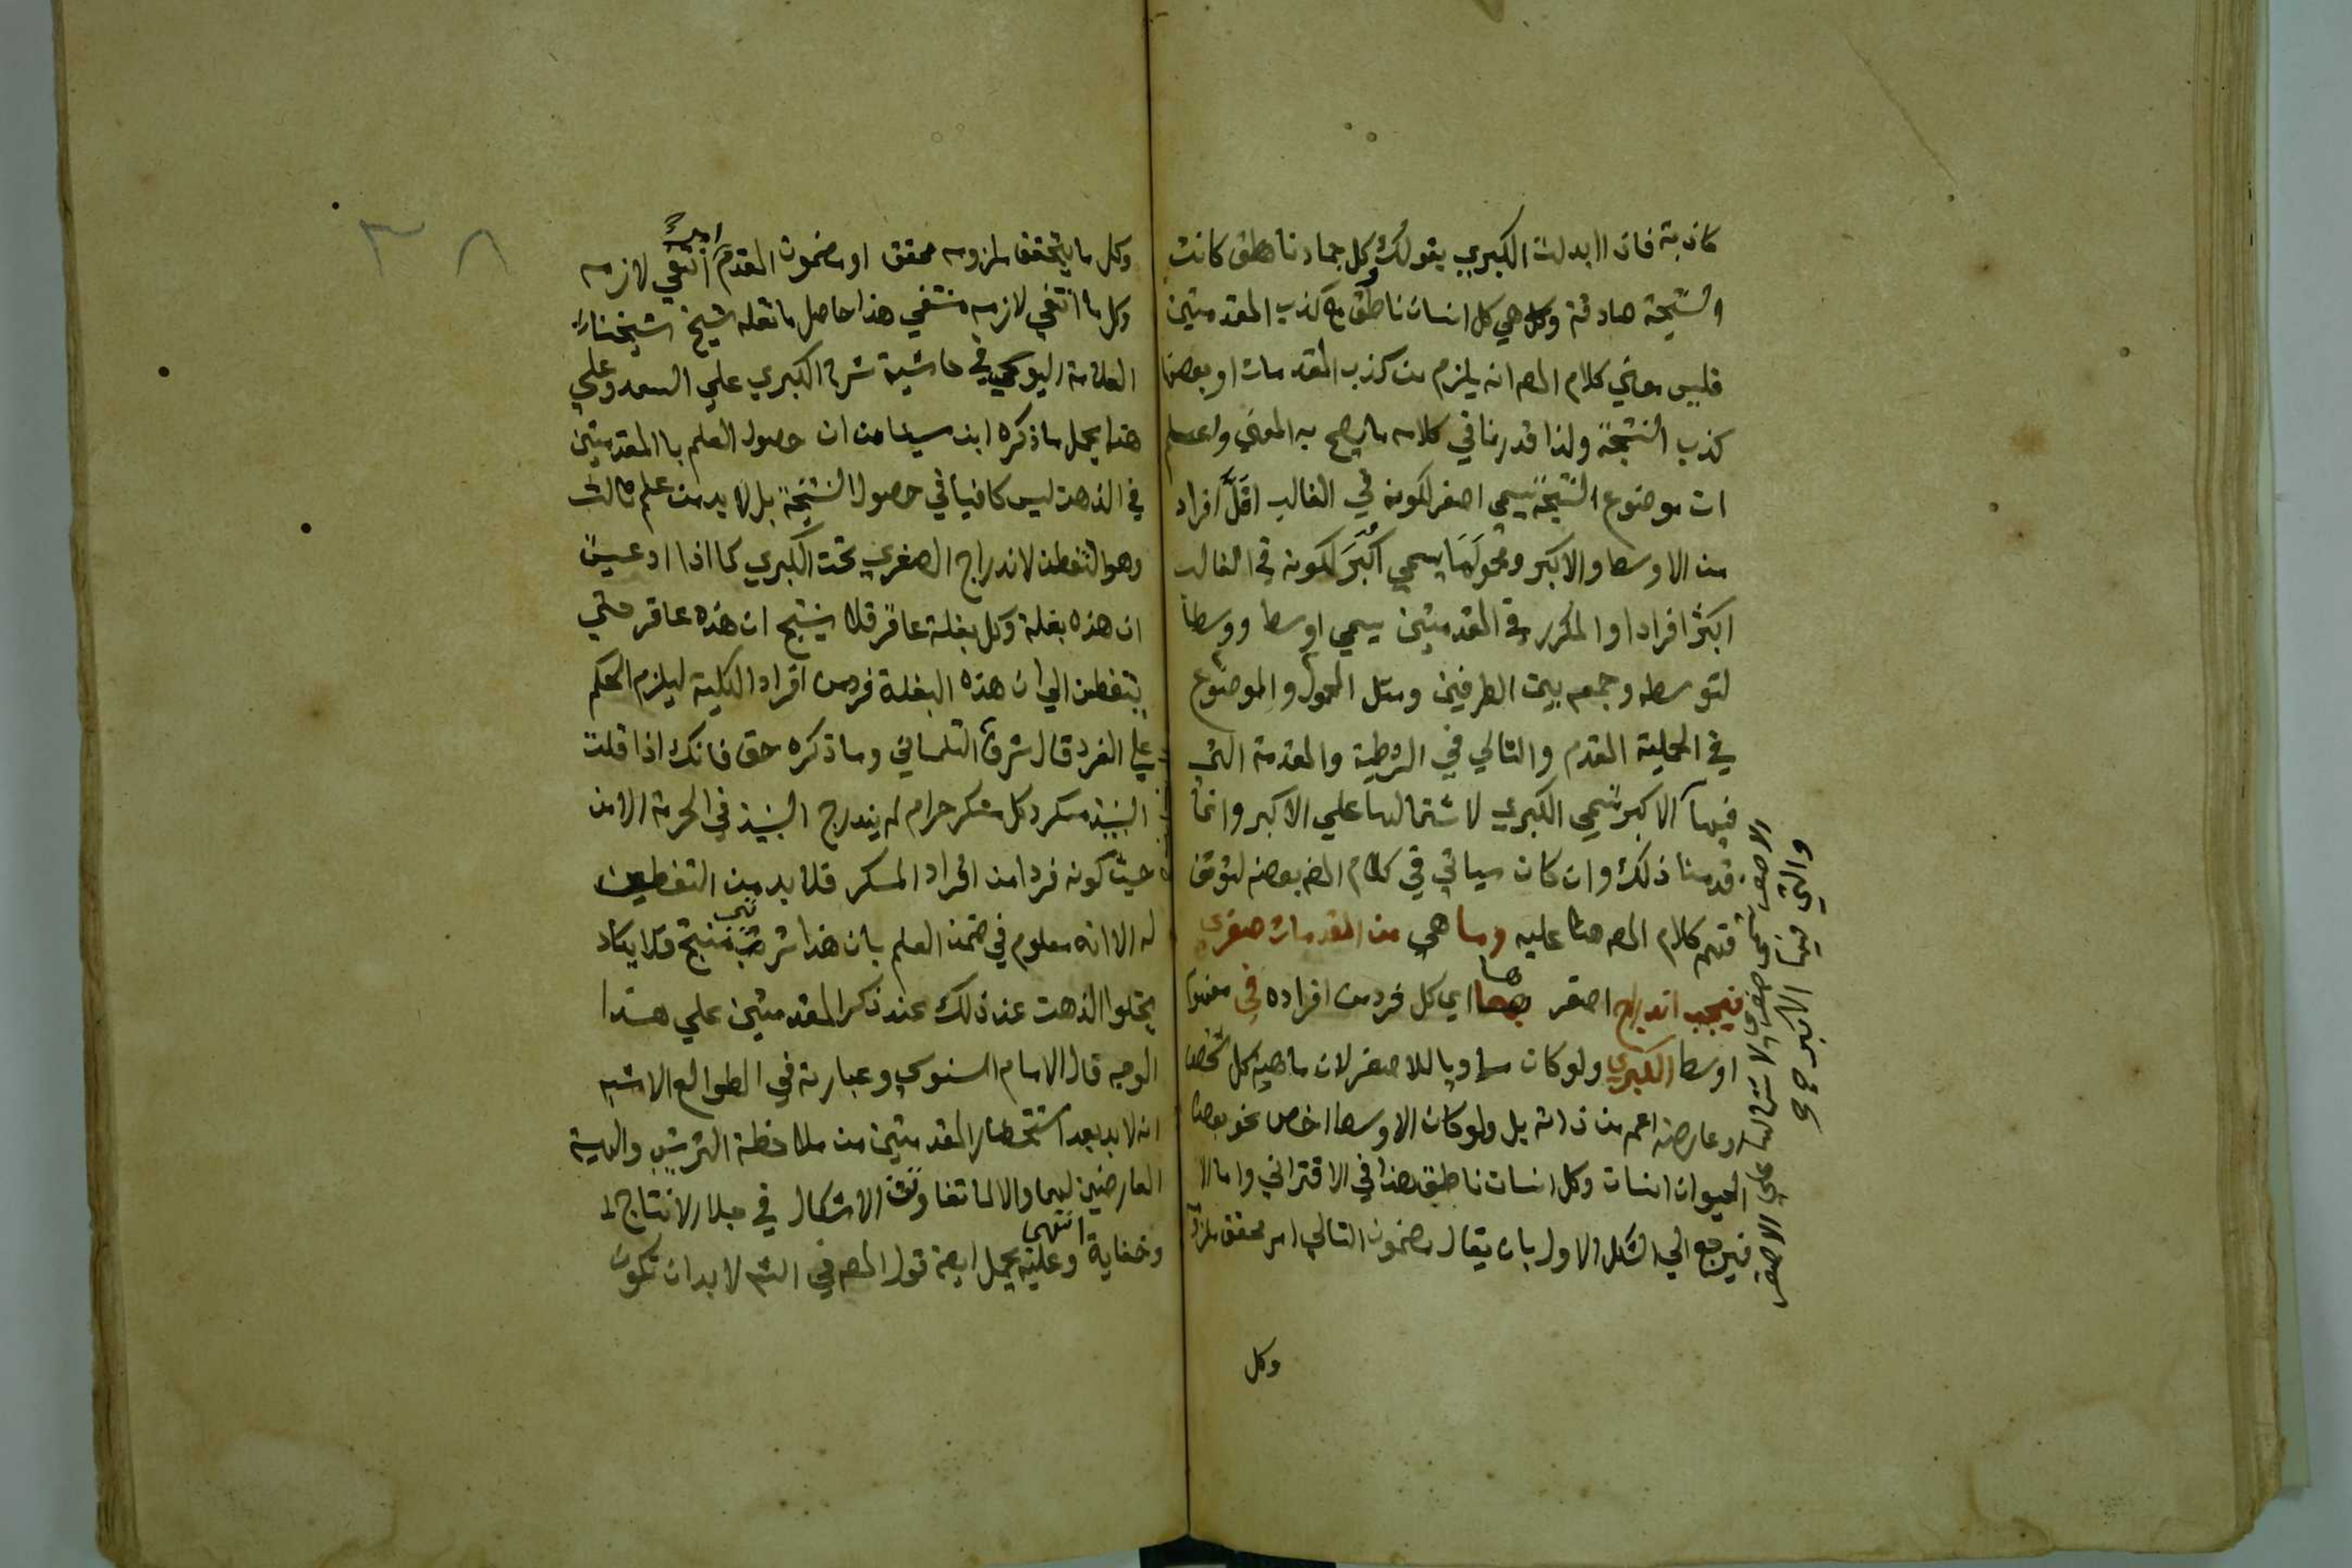 كاذبة فاذا ابدلت الكبري بقولك وكل جماد ناطق كانت
النتيجة صادقة وكل هي كل انسان ناطق مع كذب المقدمتين
فليس معني كلام المص انه يلزم من كذب المقدمات او بعضها
كذب النتيجة ولذا قدرنا في كلامه ما يصح به المعني واعلم
ان موضوع النتيجة يسمي اصغر لكونه في الغالب اقل افراد
من الاوسط والاكبر ومحولها يسمي اكبر لكونه في الغالب
اكثر افرادا والمكرر في المقدمتين يسمي اوسط ووسطا
لتوسطه وجمعه بين الطرفين ومثل المحمول والموضوع
في الحملية المقدم والتالي في الشرطية والمقدمة التي
فيها الاكبر تسمي الكبري لاشتمالها علي الاكبر وانما
قدمنا ذلك وان كان سياتي في كلام المص بعضه لتوقف
فهم كلام المص هنا عليه وما هي من المقدمات صغري
فيجب اندراج اصغر ها اي كل فرد من افراده في مفهوم
اوسط الكبري ولو كان مساويا للاصغر لان ماهية كل شخص
وعارضه اعم من ذاته بل ولو كان الاوسط اخص نحو بعض
الحيوان انسان وكل انسان ناطق هذا في الاقتراني واما الا
فيرجع الي الشكل الاول بان يقال مضمون التالي امر محقق ملزومه
والتي فيها الاكبر
الاصغر تسمي صغري لاشتمالها علي الاصغر
وكل
٣٨
وكل ما يتحقق ملزومه محقق او مضمون المقدم امر انتفي لازمه
وكل ما انتفي لازمه منتفي هذا حاصل ما نقله شيخ شيخنا
العلامة اليوسي في حاشية شرح الكبري علي السعد وعلي
هذا يحمل ما ذكره ابن سينا من ان حصول العلم با المقدمتين
في الذهن ليس كافيا في حصول النتيجة بل لا بد من علم ثالث
وهو التفطن لاندراج الصغري تحت الكبري كما اذا ادعيت
ان هذه بغلة وكل بغلة عاقر فلا ينتج ان هذه عاقر حتي
يتفطن الي ان هذه البغلة فرد من افراد الكلية ليلزم الحكم
علي الفرد قال شرف التلمساني وما ذكره حق فانك اذا قلت
النبيذ مسكر وكل مسكر حرام لم يندرج النبيذ في الحرمة الا من
حيث كونه فردا من افراد المسكر فلا بد من التفطن
له الا انه معلوم في ضمن العلم بان هذا ترتيب منتج فلا يكاد
يخلوا الذهن عن ذلك عند ذكر المقدمتين علي هذا
الوجه قال الامام السنوسي وعبارته في الطوالع الاشبه
انه لا بد بعد استحضار المقدمتين من ملاحظة الترتيب والهيئة
العارضين لهما والا لما تفاوتت الاشكال في جلاء الانتاج
وخفايه انتهي وعليه يحمل ايضه قول المص في الش لا بد ان تكون